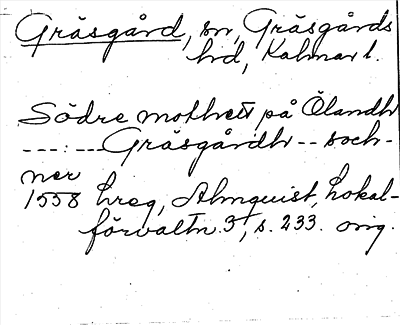 Gräsgård, sn, Gräsgårds
hd, Kalmar l.
Södre mothett på Ölandh
---:---Gräsgårdh -- soch-
ner
1558 hreg, Almquist, Lokal-
förvaltn. 3, s. 233. orig.